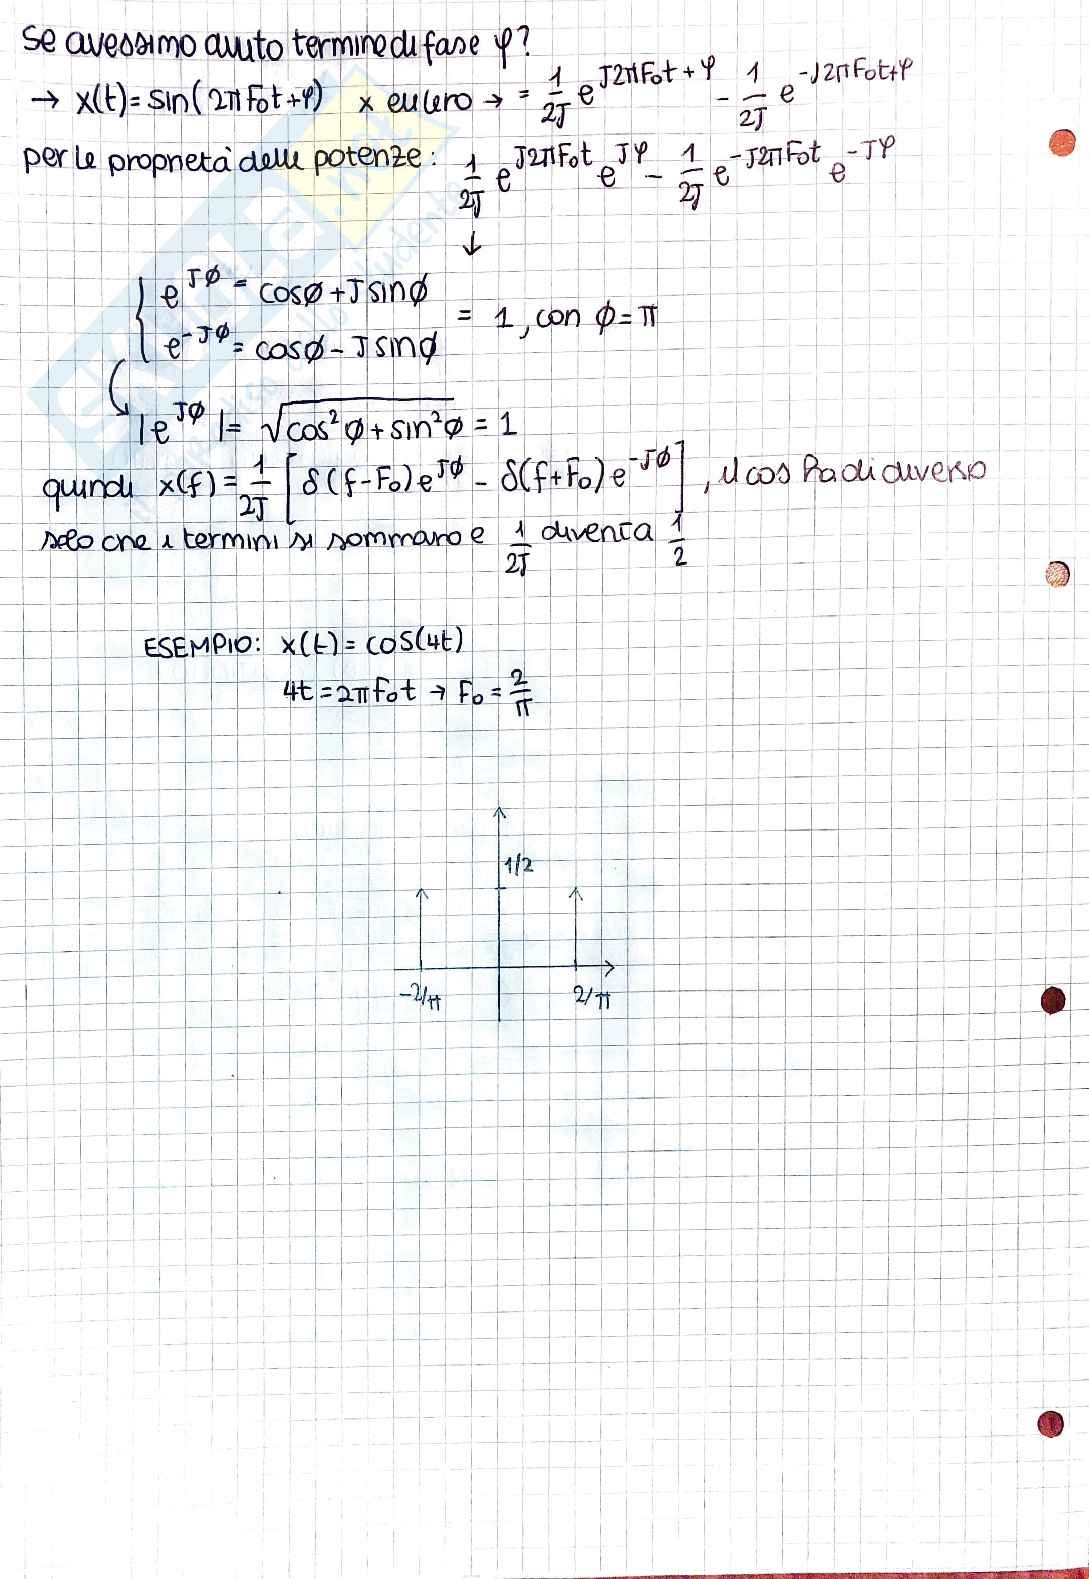 Se avessimo avuto termine di fase φ?
→ x(t)=sin(2πF₀t+φ) x eulero → = 1/2J e^(J2πF₀t+φ) - 1/2J e^(-J2πF₀t+φ)
per le proprietà delle potenze: 1/2J e^(J2πF₀t) e^(Jφ) - 1/2J e^(-J2πF₀t) e^(-Jφ)
↓
{ e^(Jϕ) = cosϕ+Jsinϕ
e^(-Jϕ) = cosϕ-Jsinϕ = 1, con ϕ=π
|e^(Jϕ)|= √(cos²ϕ+sin²ϕ) = 1
quindi x(f)= 1/2J [δ(f-F₀)e^(Jϕ) - δ(f+F₀)e^(-Jϕ)], il cos ha di diverso
solo che i termini si sommano e 1/2J diventa 1/2
ESEMPIO: x(t)=cos(4t)
4t=2πF₀t → F₀=2/π
1/2
-2/π 2/π